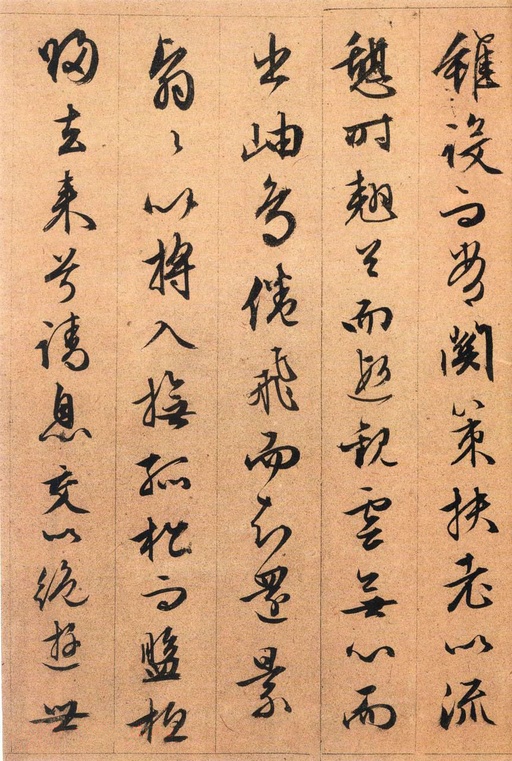 雖設而常關策扶老以流
憩時翹首而遐觀雲無心而
出岫鳥倦飛而知還景
翳〻以將入撫孤松而盤桓
歸去來兮請息交以絕遊世